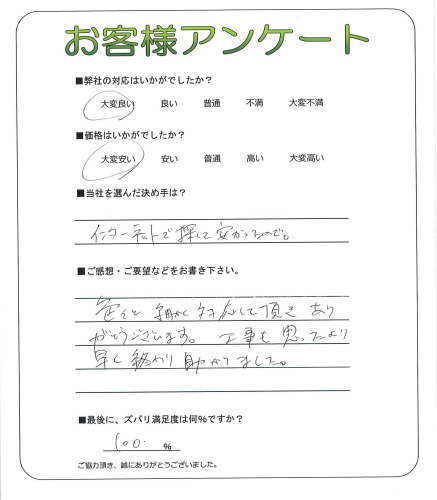 お客様アンケート
■弊社の対応はいかがでしたか？
大変良い 良い 普通 不満 大変不満
■価格はいかがでしたか？
大変安い 安い 普通 高い 大変高い
■当社を選んだ決め手は？
インターネットで探して安かったので。
■ご感想・ご要望などをお書き下さい。
細かく対応して頂き あり
がとうございます。 工事も思ったより
早く終わり助かりました。
■最後に、ズバリ満足度は何％ですか？
100. ％
ご協力頂き、誠にありがとうございました。